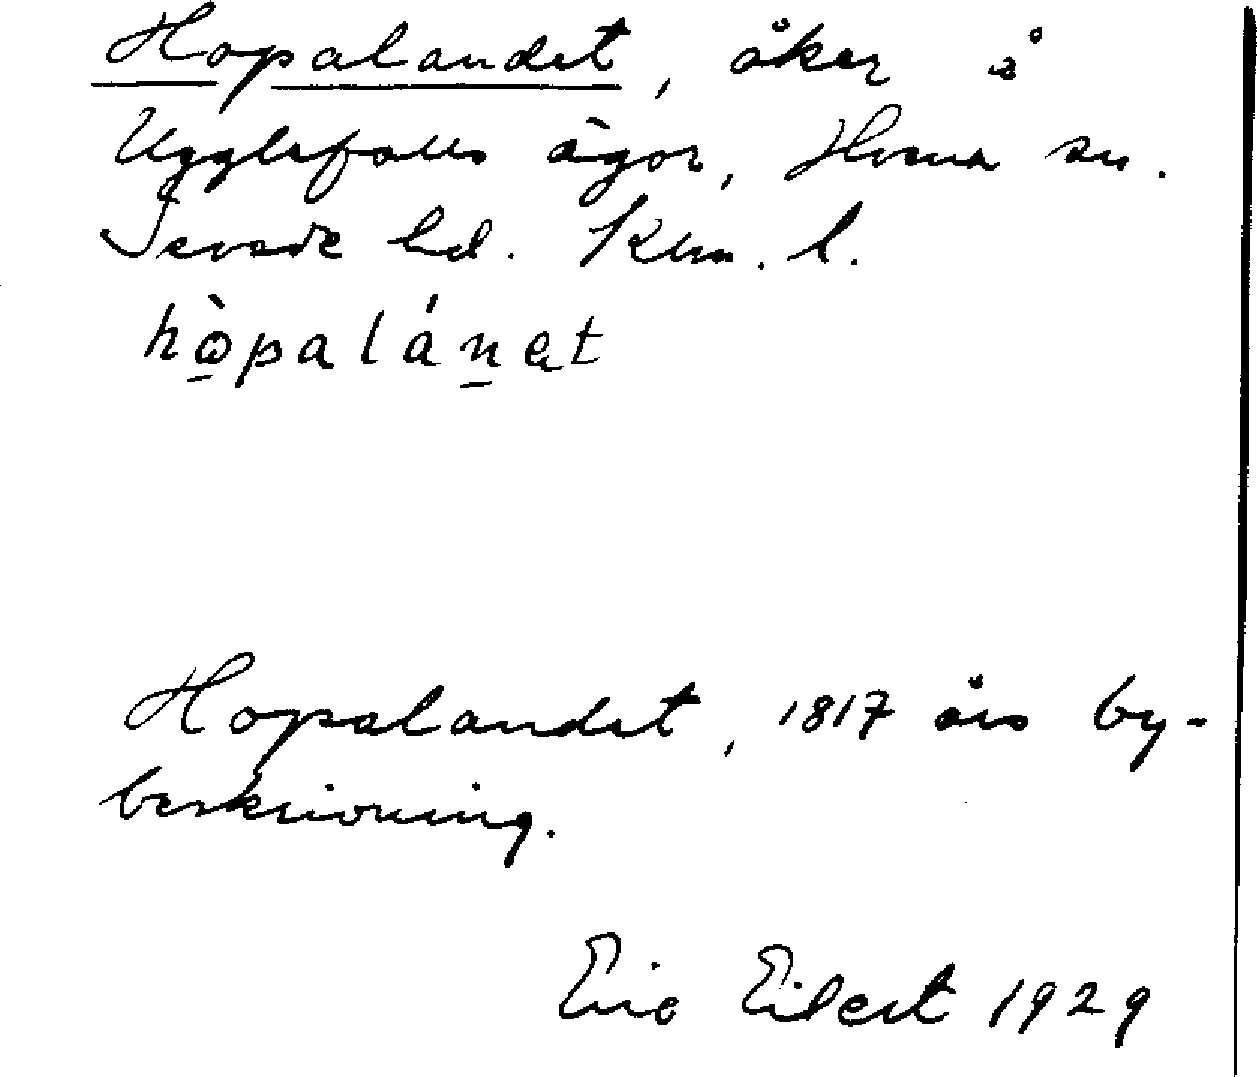 Hopalandet, åker å
Ugglefalls ägor, Hvena sn.
Sevede hd. Klm. l.
hòpalánet
Hopalandet, 1817 års by-
beskrivning.
Eric Eilert 1929